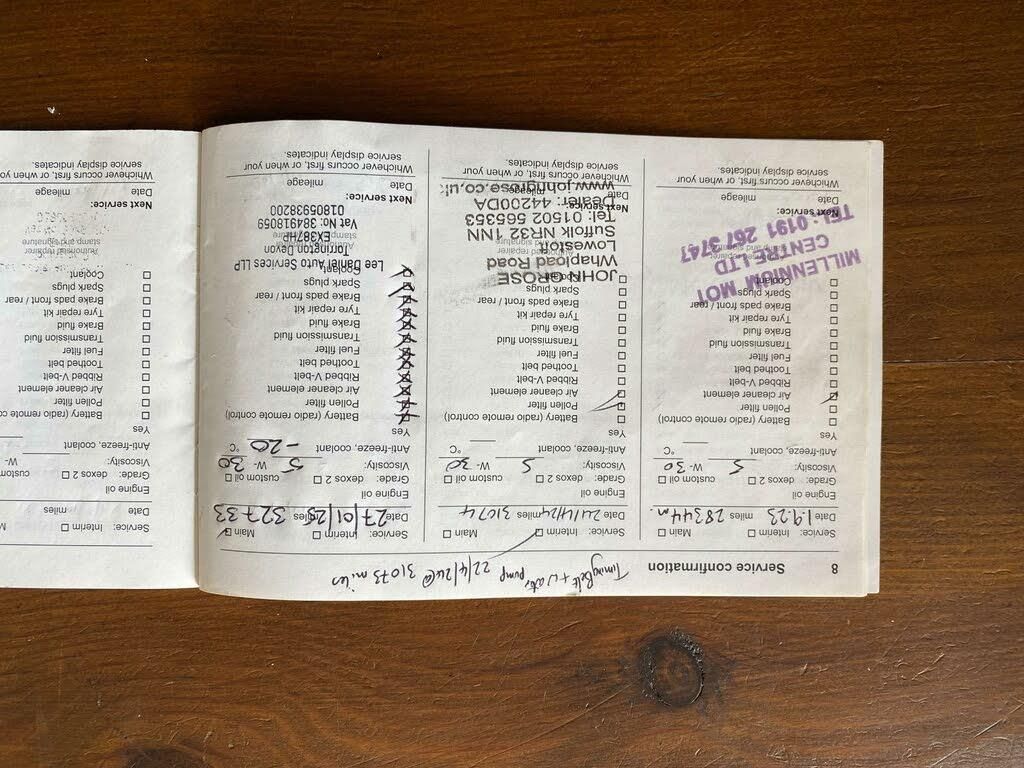 8 Service confirmation
Timing Belt + water pump 22/4/24 @ 31073 miles
Service: Interim Main
Date 1.9.23 miles 28344m
Engine oil
Grade: dexos 2 custom oil
Viscosity: 5 W- 30
Anti-freeze, coolant °C
Yes
Battery (radio remote control)
Pollen filter
Air cleaner element
Ribbed V-belt
Toothed belt
Fuel filter
Transmission fluid
Brake fluid
Tyre repair kit
Brake pads front / rear
Spark plugs
Coolant
MILLENNIUM MOT
CENTRE LTD
TEL: 0191 267 3747
Next service:
Date mileage
Whichever occurs first, or when your
service display indicates.
Service: Interim Main
Date 24/4/24 miles 31074
Engine oil
Grade: dexos 2 custom oil
Viscosity: 5 W- 30
Anti-freeze, coolant °C
Yes
Battery (radio remote control)
Pollen filter
Air cleaner element
Ribbed V-belt
Toothed belt
Fuel filter
Transmission fluid
Brake fluid
Tyre repair kit
Brake pads front / rear
Spark plugs
Coolant
JOHN GROSE
Whapload Road
Lowestoft
Suffolk NR32 1NN
Tel: 01502 565353
Dealer: 44200DA
www.johngrose.co.uk
Next service:
Date mileage
Whichever occurs first, or when your
service display indicates.
Service: Interim Main
Date 27/01/25 miles 32733
Engine oil
Grade: dexos 2 custom oil
Viscosity: 5 W- 30
Anti-freeze, coolant -20 °C
Yes
Battery (radio remote control)
Pollen filter
Air cleaner element
Ribbed V-belt
Toothed belt
Fuel filter
Transmission fluid
Brake fluid
Tyre repair kit
Brake pads front / rear
Spark plugs
Coolant
Lee Daniel Auto Services LLP
Torrington Devon
EX387HP
Vat No: 384918059
01805938200
Next service:
Date mileage
Whichever occurs first, or when your
service display indicates.
Service: Interim M
Date miles
Engine oil
Grade: dexos 2 custom
Viscosity: W-
Anti-freeze, coolant
Yes
Battery (radio remote co
Pollen filter
Air cleaner element
Ribbed V-belt
Toothed belt
Fuel filter
Transmission fluid
Brake fluid
Tyre repair kit
Brake pads front / rear
Spark plugs
Coolant
Authorised repairer
stamp and signature
Next service:
Date mileage
Whichever occurs first, or when your
service display indicates.